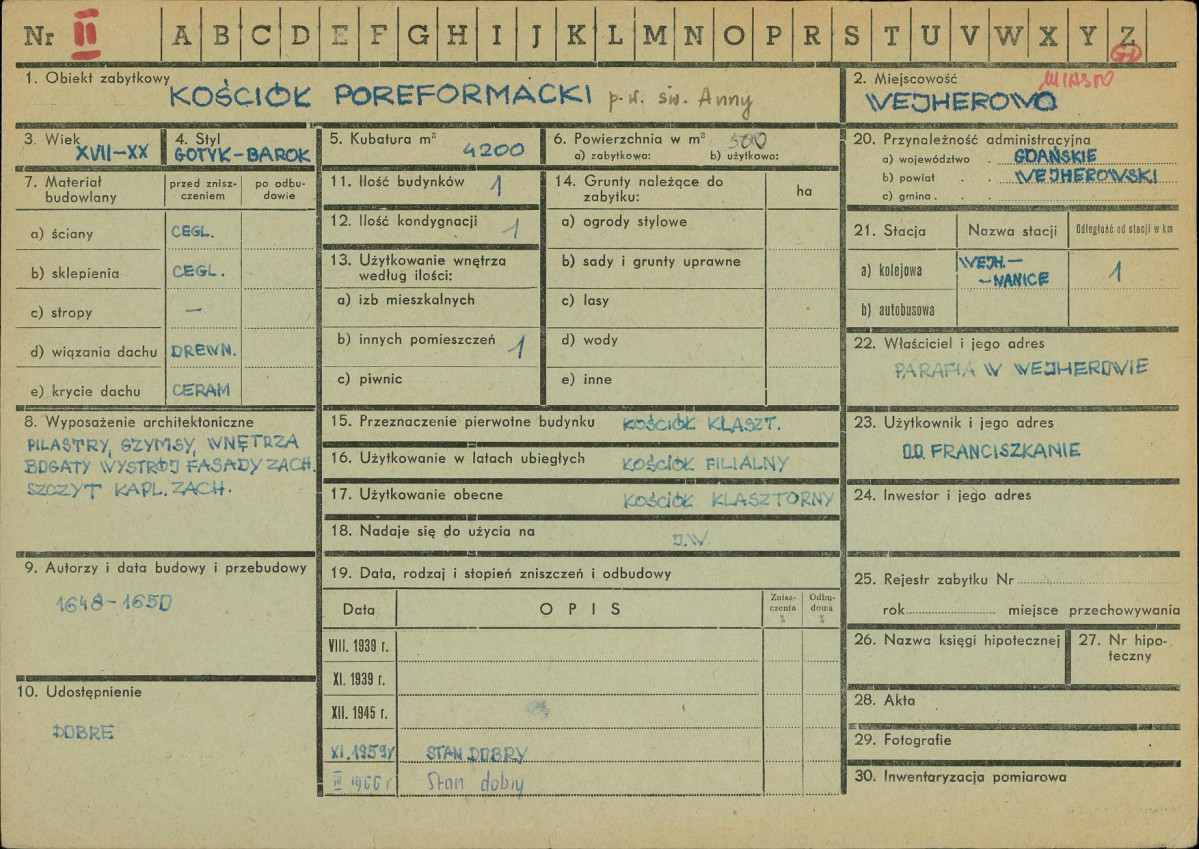 Nr II A B C D E F G H I J K L M N O P R S T U V W X Y Z
1. Obiekt zabytkowy
KOŚCIÓŁ POREFORMACKI p.w. św. Anny
2. Miejscowość MIASTO
WEJHEROWO
3. Wiek
XVII-XX
4. Styl
GOTYK-BAROK
5. Kubatura m³
4200
6. Powierzchnia w m² 500
a) zabytkowa: b) użytkowa:
7. Materiał budowlany
przed znisz-
czeniem
po odbu-
dowie
a) ściany CEGL.
b) sklepienia CEGL.
c) stropy —
d) wiązania dachu DREWN.
e) krycie dachu CERAM
8. Wyposażenie architektoniczne
PILASTRY, GZYMSY, WNĘTRZA
BOGATY WYSTRÓJ FASADY ZACH.
SZCZYT KAPL. ZACH.
9. Autorzy i data budowy i przebudowy
1648-1650
10. Udostępnienie
DOBRE
11. Ilość budynków 1
12. Ilość kondygnacji 1
13. Użytkowanie wnętrza
według ilości:
a) izb mieszkalnych
b) innych pomieszczeń 1
c) piwnic
14. Grunty należące do
zabytku:
ha
a) ogrody stylowe
b) sady i grunty uprawne
c) lasy
d) wody
e) inne
15. Przeznaczenie pierwotne budynku KOŚCIÓŁ KLASZT.
16. Użytkowanie w latach ubiegłych KOŚCIÓŁ FILIALNY
17. Użytkowanie obecne KOŚCIÓŁ KLASZTORNY
18. Nadaje się do użycia na J.W.
19. Data, rodzaj i stopień zniszczeń i odbudowy
Data OPIS
Znisz-
czenia
%
Odbu-
dowa
%
VIII. 1939 r.
XI. 1939 r.
XII. 1945 r.
XI. 1959r STAN DOBRY
III 1966 r Stan dobry
20. Przynależność administracyjna
a) województwo . GDAŃSKIE
b) powiat . . WEJHEROWSKI
c) gmina . . .
21. Stacja Nazwa stacji Odległość od stacji w km
a) kolejowa WEJH.-
-NANICE 1
b) autobusowa
22. Właściciel i jego adres
PARAFIA W WEJHEROWIE
23. Użytkownik i jego adres
O.O. FRANCISZKANIE
24. Inwestor i jego adres
25. Rejestr zabytku Nr
rok miejsce przechowywania
26. Nazwa księgi hipotecznej
27. Nr hipo-
teczny
28. Akta
29. Fotografie
30. Inwentaryzacja pomiarowa